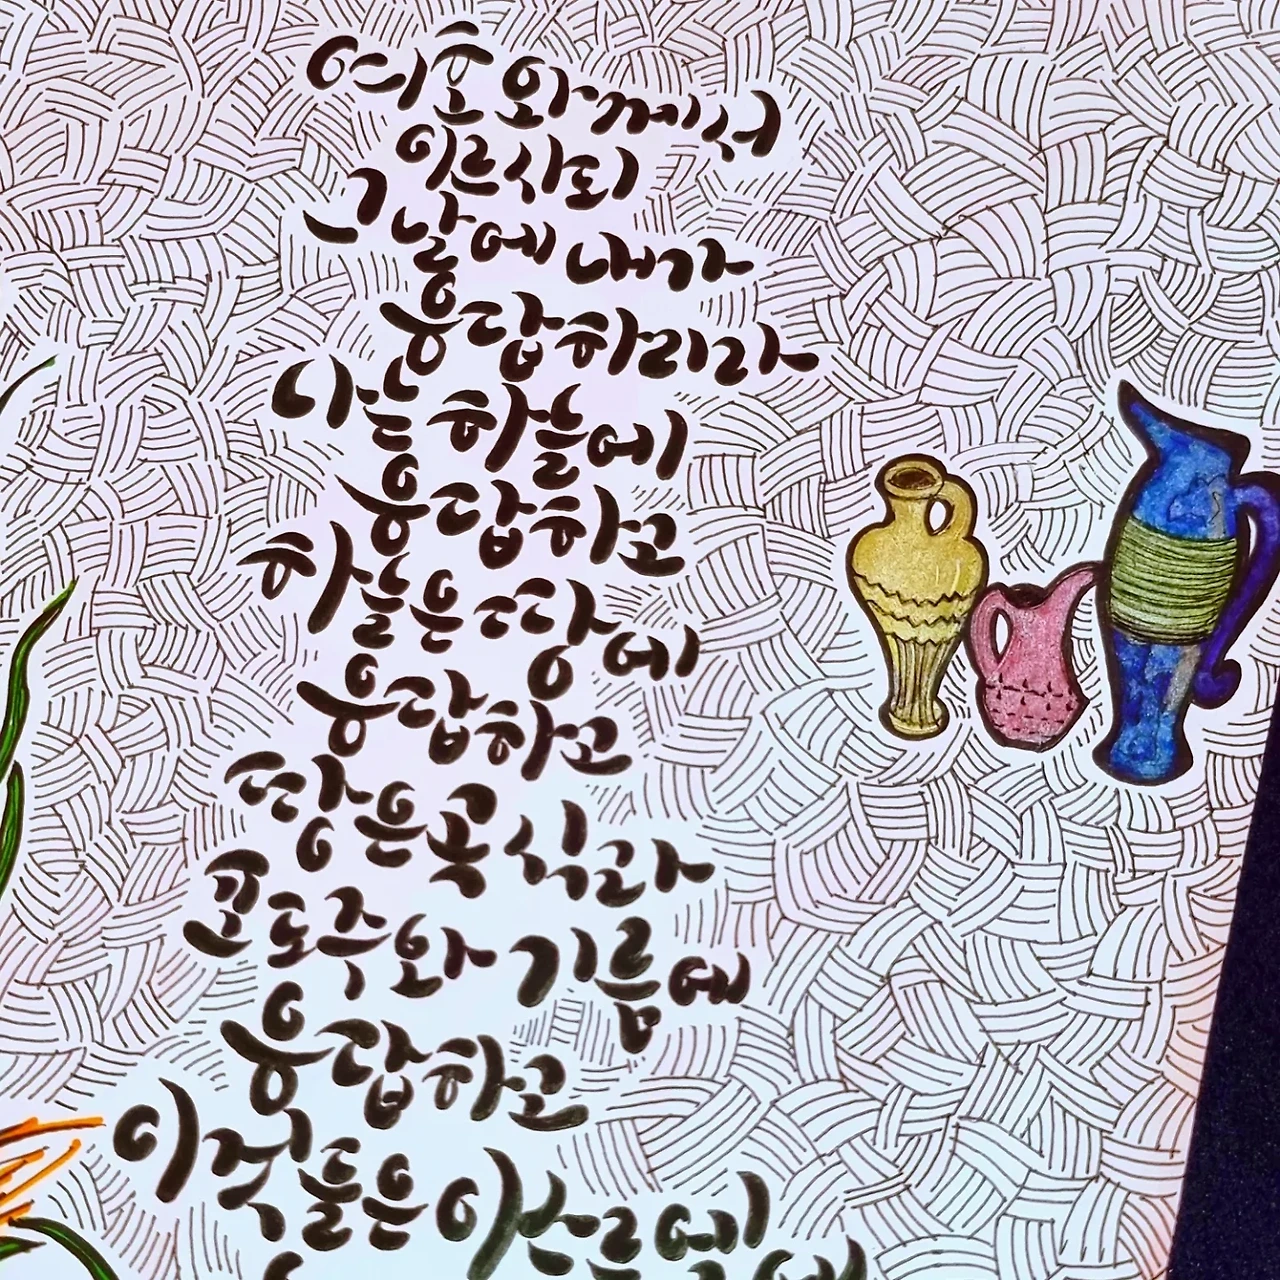 여호와께서
이르사되
그 날에 내가
응답하리라
나는 하늘에
응답하고
하늘은 땅에
응답하고
땅은 곡식과
포도주와 기름에
응답하고
이것들은 이스르엘에